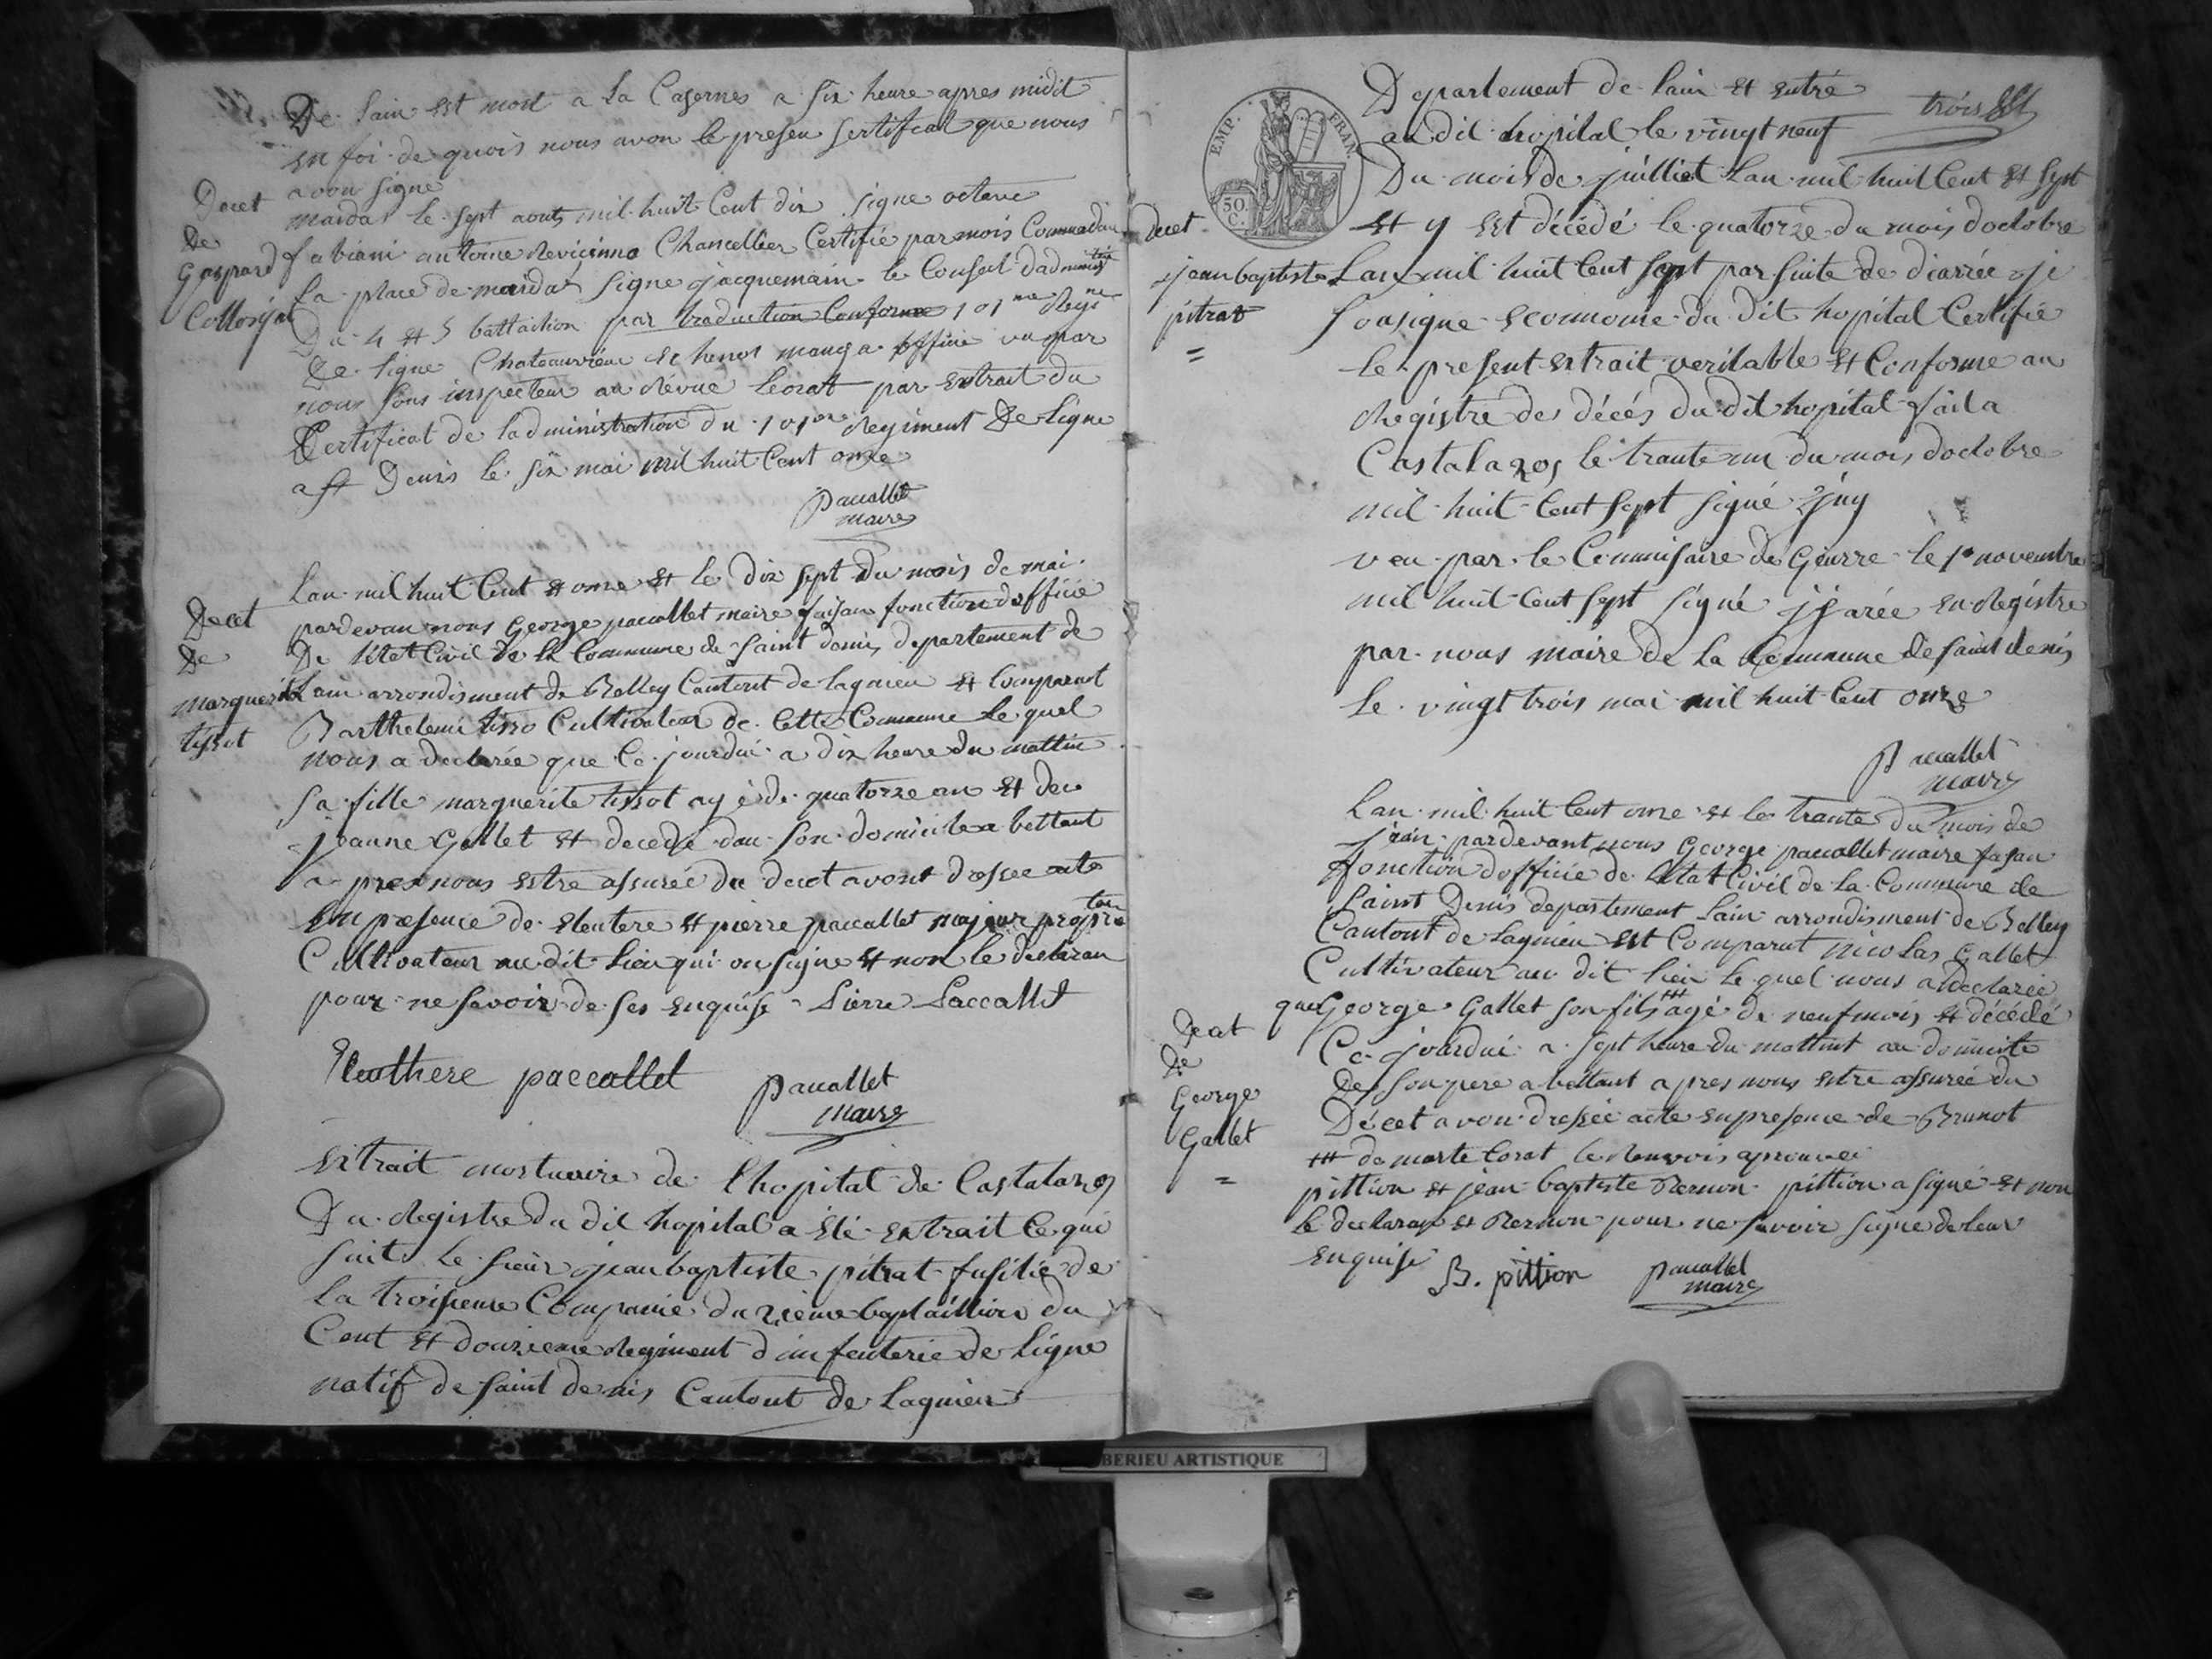 De lain est mort a La Casernes a six heure apres midit
en foi de quois nous avon le presen sertificat que nous
avon signe
Decet
De
Gaspard
Collonjat
maida le sept aouts mil huit Cent dix signe octave
fabiani antoine Chancellier Certifié par mois Commadan
La place de maida signe jacquemain le Conseil dadminis
Du 4 et 5 battaition par traduction Conforme 101me Regi
De Ligne Chateauvieux manga officie vu par
nous sous inspecteur au révue par extrait du
Certificat de ladministration du 101me Regiment De Ligne
a st Denis le six mai mil huit Cent onze
paccallet
maire
Decet
De
marguerite
tissot
Lan mil huit Cent et onze et le dix sept du mois de mai
pardevan nous George paccallet maire faisan fonction dofficié
De létat Civil de la Commune de saint denis departement de
Lain arrondisment de Belley Cantont de lagnieu et Comparut
Barthelemi tisso Cultivateur de Cette Commune Le quel
nous a declarée que Ce jourdui a dix heure du mattin
sa fille marguerite tissot ayé de quatorze an et deu
jeanne Gallet et decedé dan son domicile a bettant
apres nous estre assurée du decet avont dressee acte
en presence de eleutere et pierre paccallet majeur propriétair
Cultivateur au dit Lieu qui on signe et non le declaran
pour ne savoir de ses enquise Pierre Paccallet
Eleuthere paccallet
paccallet
maire
extrait mortuaire de l'hopital de Castalazos
Du Registre du dit hopital a été extrait Ce qui
suit Le sieur jean baptiste pitrat fusilié de
La troisieme Companie du 2ieme baptaillion du
Cent et douzieme regiment d'infenterie de Ligne
natif de saint denis Cantont de Lagnieu
EMP. FRAN.
50 C.
Departement de Lain et entré
trois
au dit hopital le vingt neuf
Du mois de juilliet Lan mil huit Cent et sept
et y est décédé le quatorze du mois doctobre
Decet
jean baptiste
pitrat
=
Lan mil huit Cent sept par suite de diarrée je
sousigne econnome du dit hopital Certifié
le present extrait veritable et Conforme au
Registre des décés du dit hopital fait a
Castalazos le trante un du mois doctobre
mil huit Cent sept signé
veu par le Commisaire de Geurre le 1er novembre
mil huit Cent sept signé jjarée en Registre
par nous maire de La Commune de saint denis
Le vingt trois mai mil huit Cent onze
paccallet
maire
Lan mil huit Cent onze et le trante du mois de
juin pardevant nous George paccallet maire fasan
fonction dofficié de Létat Civil de La Commune de
saint Denis departement Lain arrondisment de Belley
Cantont de Lagnieu est Comparut nicolas Gallet
Cultivateur au dit lieu Le quel nous a declarée
que George Gallet son fils ttt agé de neuf mois et décédé
Decet
De
George
Gallet
=
Ce jourdui a sept heure du mattint au domicile
De son pere a bettant apres nous estre assurée du
Décet avon dressée acte en presence de Brunot
ttt
pittion et jean baptiste Rernon pittion a signé et non
le declaran et Rernon pour ne savoir signe de leur
enquise
B. pittion
paccallet
maire
BERIEU ARTISTIQUE